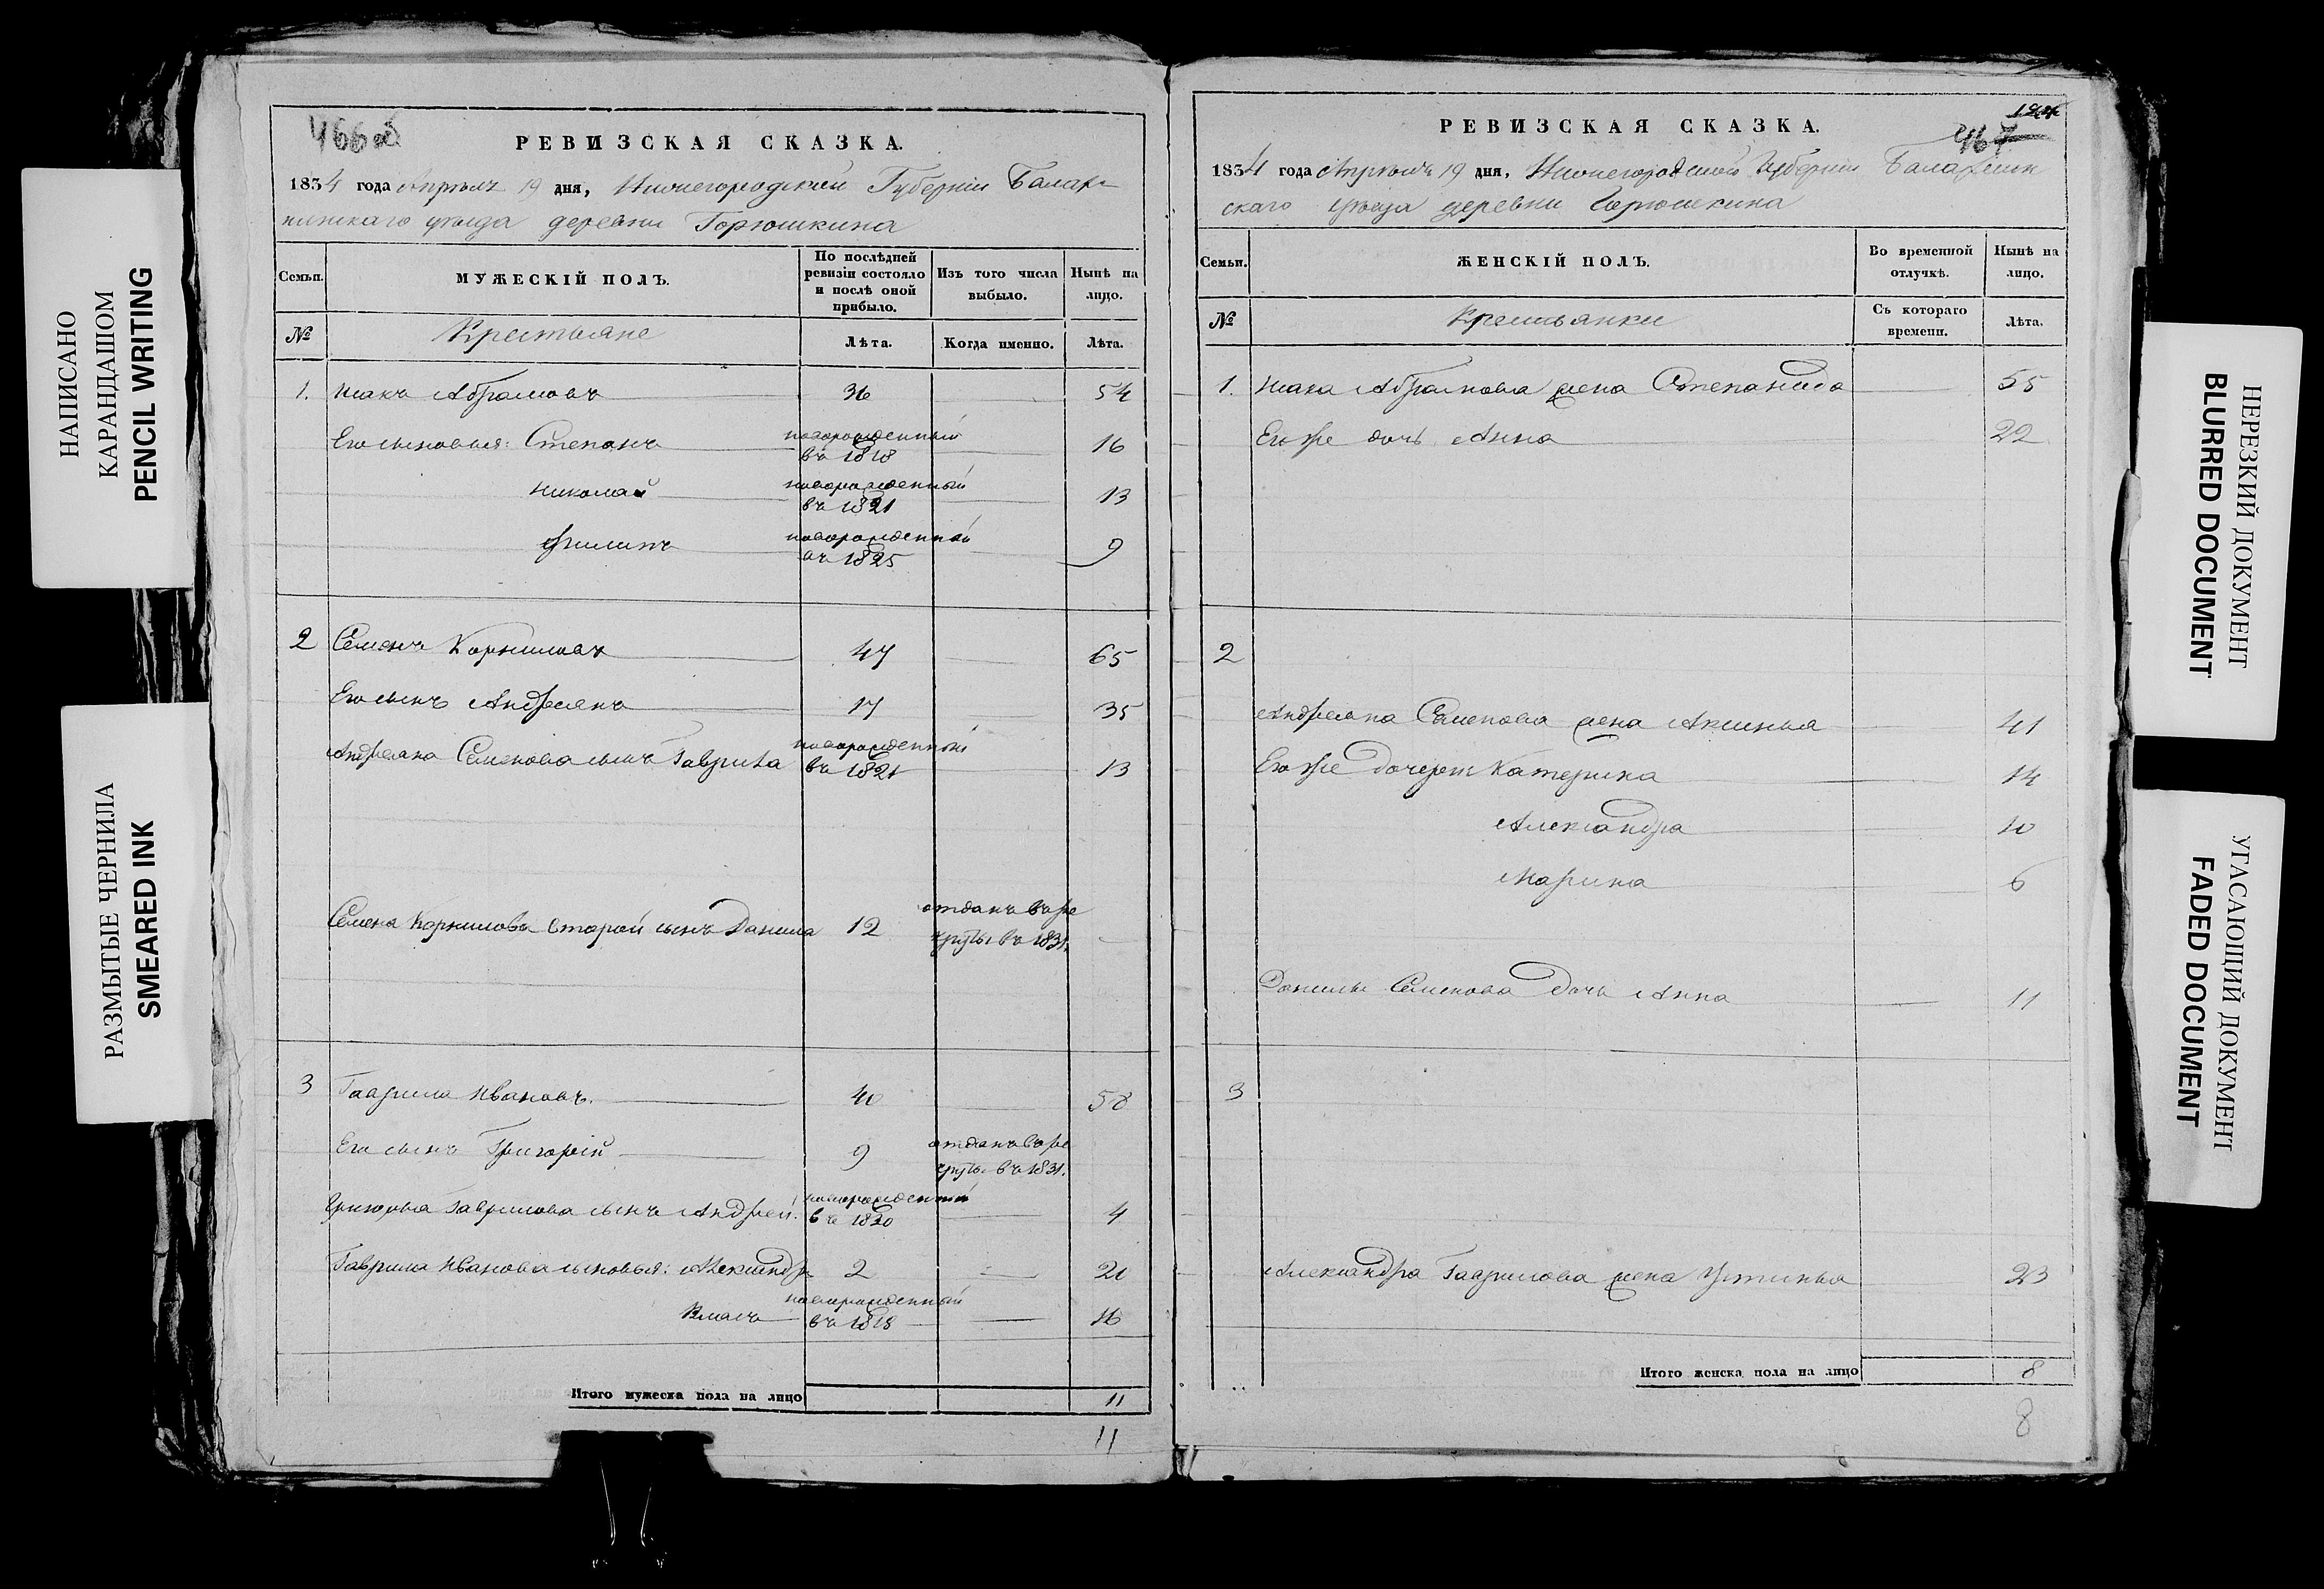 НАПИСАНО
КАРАНДАШОМ
PENCIL WRITING
РАЗМЫТЫЕ ЧЕРНИЛА
SMEARED INK
466об
РЕВИЗСКАЯ СКАЗКА.
1834 года Апреля 19 дня, Нижегородской Губернiи Балах-
нинскаго уѣзда деревни Горюшкина
Семьи.
МУЖЕСКIЙ ПОЛЪ.
По послѣдней ревизiи состояло и послѣ оной прибыло.
Изъ того числа выбыло.
Нынѣ на лицо.
№
Крестьяне
Лѣта.
Когда именно.
Лѣта.
1. Исакъ Абрамовъ 36 54
Его сыновья: Степанъ новорожденный въ 1818 16
Николай новорожденный въ 1821 13
Филипъ новорожденный въ 1825 9
2 Семенъ Корниловъ 47 65
Его сынъ Андреянъ 17 35
Андреяна Семенова сынъ Гаврила новорожденный въ 1821 13
Семена Корнилова второй сынъ Данила 12 отданъ въ ре-
круты въ 1831.
3 Гаврила Ивановъ. 40 58
Его сынъ Григорiй 9 отданъ въ ре-
круты въ 1831.
Григорья Гаврилова сынъ Андрей. новорожденный въ 1830 4
Гаврила Иванова сыновья: Александръ 2 20
Власъ новорожденный въ 1818 16
Итого мужеска пола на лицо 11
11
467
РЕВИЗСКАЯ СКАЗКА.
1834 года Апреля 19 дня, Нижегородской Губернiи Балахнин-
скаго уѣзда деревни Горюшкина
Семьи.
ЖЕНСКIЙ ПОЛЪ.
Во временной отлучкѣ.
Нынѣ на лицо.
№
Крестьянки
Съ котораго времени.
Лѣта.
1. Исака Абрамова жена Степанида 55
Его же дочь Анна 22
2
Андреяна Семенова жена Аксинья 41
Его же дочери Катерина 14
Александра 10
Марина 6
Данилы Семенова дочь Анна 11
3
Александра Гаврилова жена Устинья 23
Итого женска пола на лицо 8
8
НЕРЕЗКИЙ ДОКУМЕНТ
BLURRED DOCUMENT
УГАСАЮЩИЙ ДОКУМЕНТ
FADED DOCUMENT